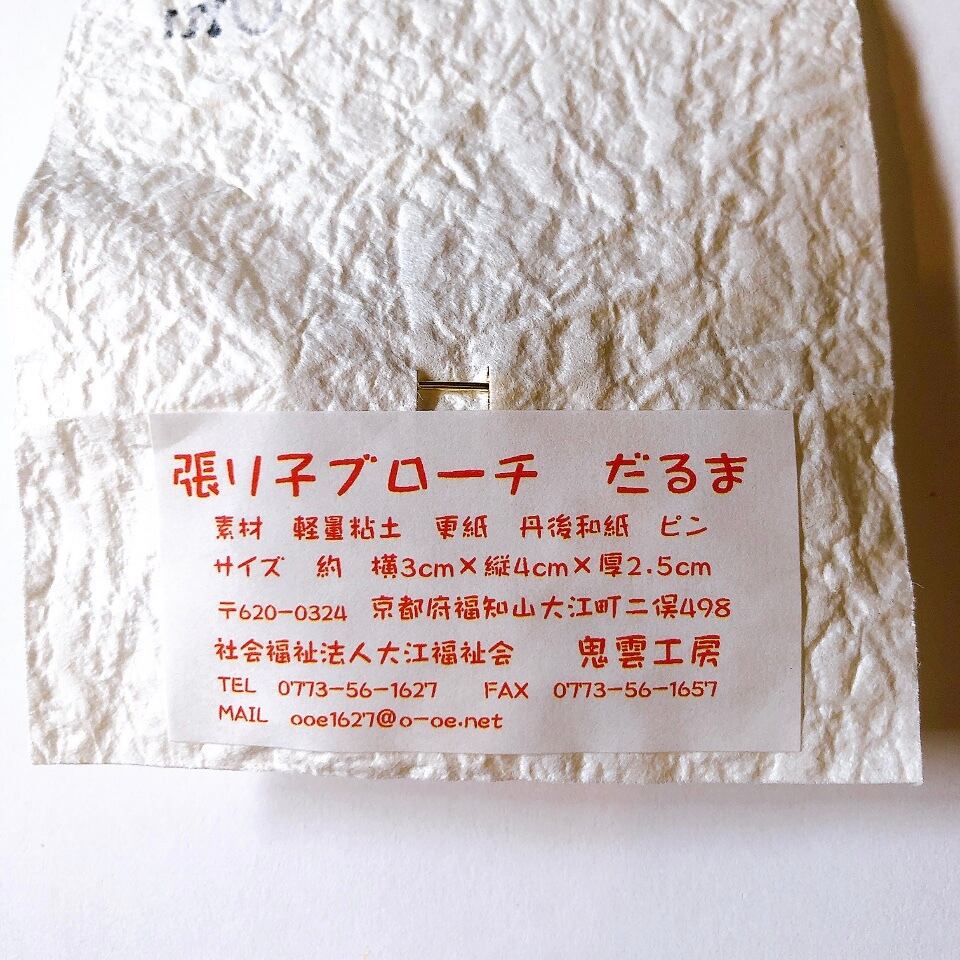 張り子ブローチ　だるま
素材　軽量粘土　更紙　丹後和紙　ピン
サイズ　約　横3cm×縦4cm×厚2.5cm
〒620-0324　京都府福知山大江町二俣498
社会福祉法人大江福祉会　　鬼雲工房
TEL　0773-56-1627　　FAX　0773-56-1657
MAIL　ooe1627@o-oe.net